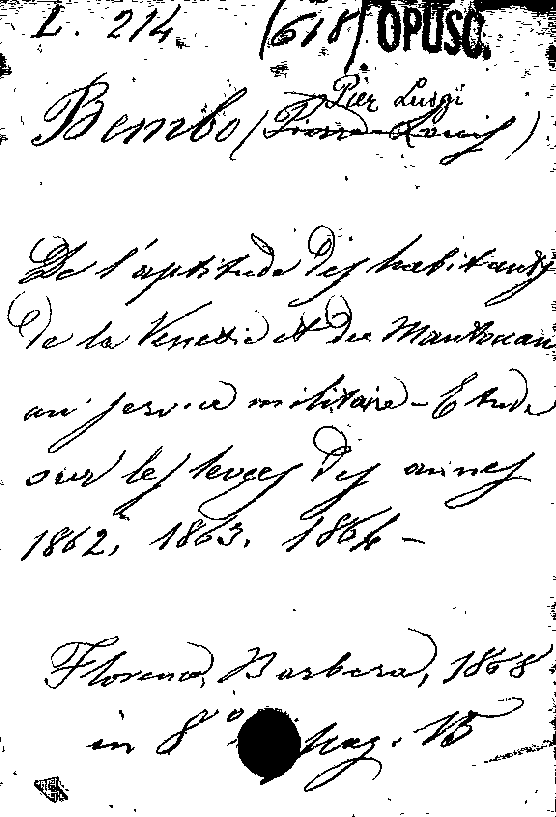 L. 214 (618) OPUSC.
Pier Luigi
Bembo (Pierre-Louis)
De l'aptitude des habitants
de la Venetie et du Mantouan
au service militaire - Etude
sur les levees des annes
1862, 1863, 1864 -
Florence, Barbera, 1868
in 8° pag. 15